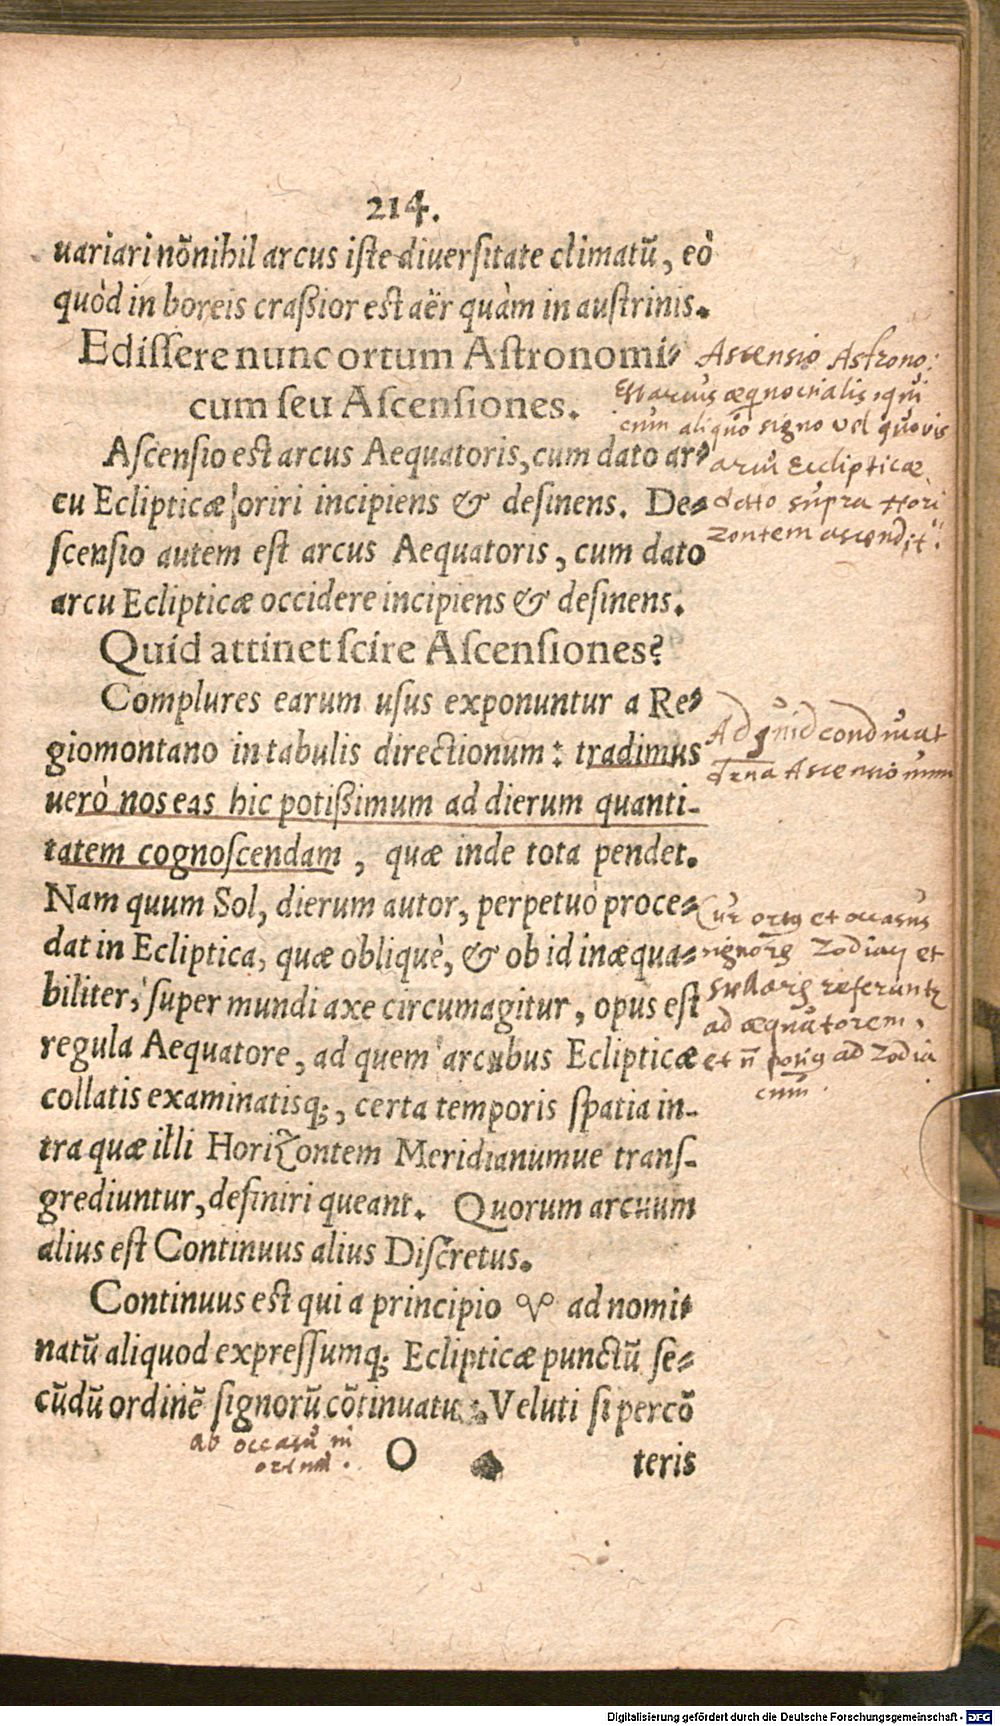 214.
uariari nõnihil arcus iste diuersitate climatũ, eò
quòd in boreis craßior est aër quàm in austrinis.
Edissere nunc ortum Astronomi-
cum seu Ascensiones.
Ascensio est arcus Aequatoris, cum dato ar-
cu Eclipticæ oriri incipiens & desinens. De-
scensio autem est arcus Aequatoris, cum dato
arcu Eclipticæ occidere incipiens & desinens.
Quid attinet scire Ascensiones?
Complures earum usus exponuntur a Re-
giomontano in tabulis directionum: tradimus
uerò nos eas hic potißimum ad dierum quanti-
tatem cognoscendam, quæ inde tota pendet.
Nam quum Sol, dierum autor, perpetuò proce-
dat in Ecliptica, quæ obliquè, & ob id inæqua-
biliter, super mundi axe circumagitur, opus est
regula Aequatore, ad quem arcubus Eclipticæ
collatis examinatisq;, certa temporis spatia in-
tra quæ illi Horizontem Meridianumue trans-
grediuntur, definiri queant. Quorum arcuum
alius est Continuus alius Discretus.
Continuus est qui a principio ♈ ad nomi-
natũ aliquod expressumq; Eclipticæ punctũ se-
cũdũ ordinẽ signorũ cõtinuatu. Veluti si percõ
O
teris
Ascensio Astrono:
Est arcus æqnoctialis, qui
cum aliquo signo vel quovis
arcu Ecclipticæ
dato supra Hori
zontem ascendit.
Ad quid conducat
Ascensionum
Cur ortus et occasus
signorum Zodiaci et
stellarum referuntur
ad æquatorem,
et nõ potius ad Zodia
cum.
ab occasu in
ortum.
Digitalisierung gefördert durch die Deutsche Forschungsgemeinschaft - DFG